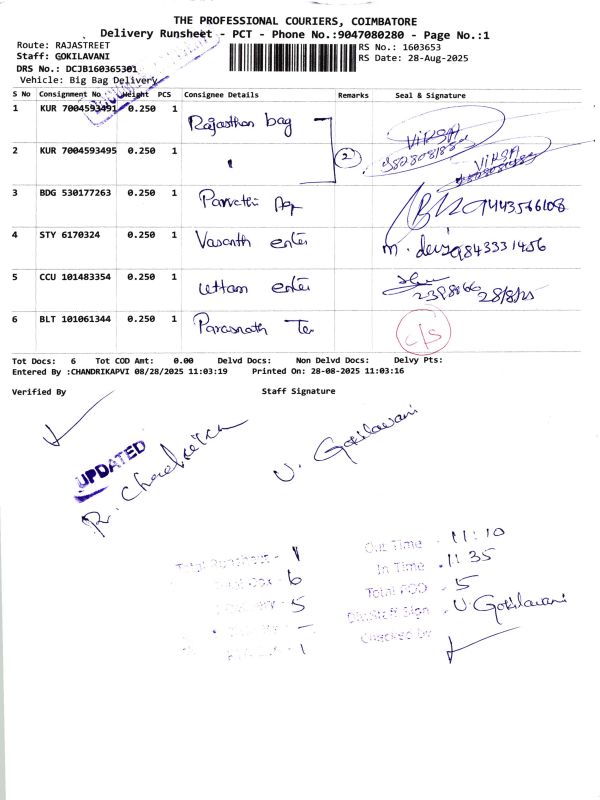 THE PROFESSIONAL COURIERS, COIMBATORE
Delivery Runsheet - PCT - Phone No.:9047080280 - Page No.:1
Route: RAJASTREET
RS No.: 1603653
Staff: GOKILAVANI
RS Date: 28-Aug-2025
DRS No.: DCJB160365301
Vehicle: Big Bag Delivery
S No Consignment No Weight PCS Consignee Details Remarks Seal & Signature
1 KUR 7004593491 0.250 1 Rajasthan bag VIKSA
2 KUR 7004593495 0.250 1 " 2 VIKSA
3 BDG 530177263 0.250 1 Parvathi 9443566108
4 STY 6170324 0.250 1 Vasanth enter m. devi 9843331456
5 CCU 101483354 0.250 1 uttam enter 28/8/25
6 BLT 101061344 0.250 1 Parasnath Tex c/s
Tot Docs: 6 Tot COD Amt: 0.00 Delvd Docs: Non Delvd Docs: Delvy Pts:
Entered By :CHANDRIKAPVI 08/28/2025 11:03:19 Printed On: 28-08-2025 11:03:16
Verified By Staff Signature
UPDATED
V. Gokilavani
Total Runsheet - 1
Total Dox - 6
5
-
1
Out Time - 11:10
In Time - 11 35
Total POD - 5
Staff Sign - V. Gokilavani
Checked by